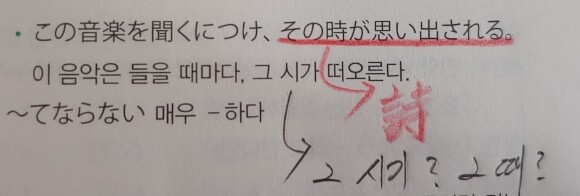 • この音楽を聞くにつけ、その時が思い出される。
이 음악은 들을 때마다, 그 시가 떠오른다.
～てならない 매우 -하다
詩
그 시기? 그 때?